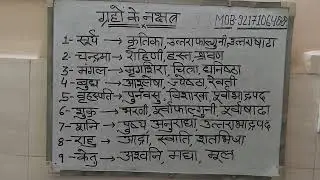 ग्रहों के नक्षत्र
MOB-9217106488
1- सूर्य - कृतिका, उत्तराफाल्गुनी, उत्तराषाढा
2- चन्द्रमा - रोहिणी, हस्त, श्रवण
3- मंगल - मृगशिरा, चित्रा, धनिष्ठा
4- बुध - आश्लेषा, ज्येष्ठा, रेवती
5- बृहस्पति - पुनर्वसु, विशाखा, पूर्वाभाद्रपद
6- शुक्र - भरणी, पूर्वाफाल्गुनी, पूर्वाषाढा
7- शनि - पुष्य, अनुराधा, उत्तराभाद्रपद
8- राहु - आर्द्रा, स्वाति, शतभिषा
9- केतु - अश्वनि, मघा, मूल